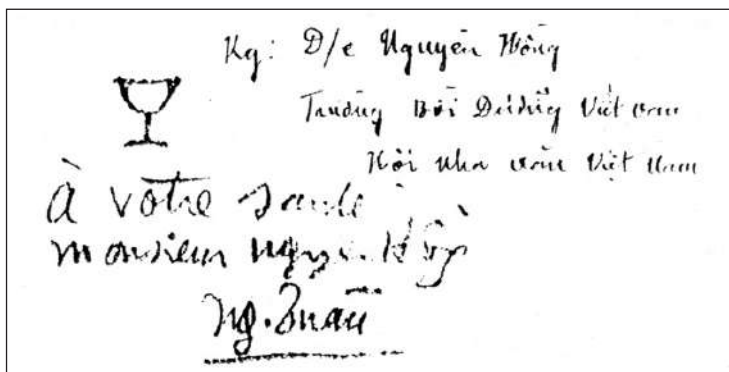 Kg: Đ/c Nguyên Hồng
Trường Bồi Dưỡng Viết văn
Hội nhà văn Việt Nam
À votre santé !
Monsieur Nguyên Hồng
Ng. Tuân